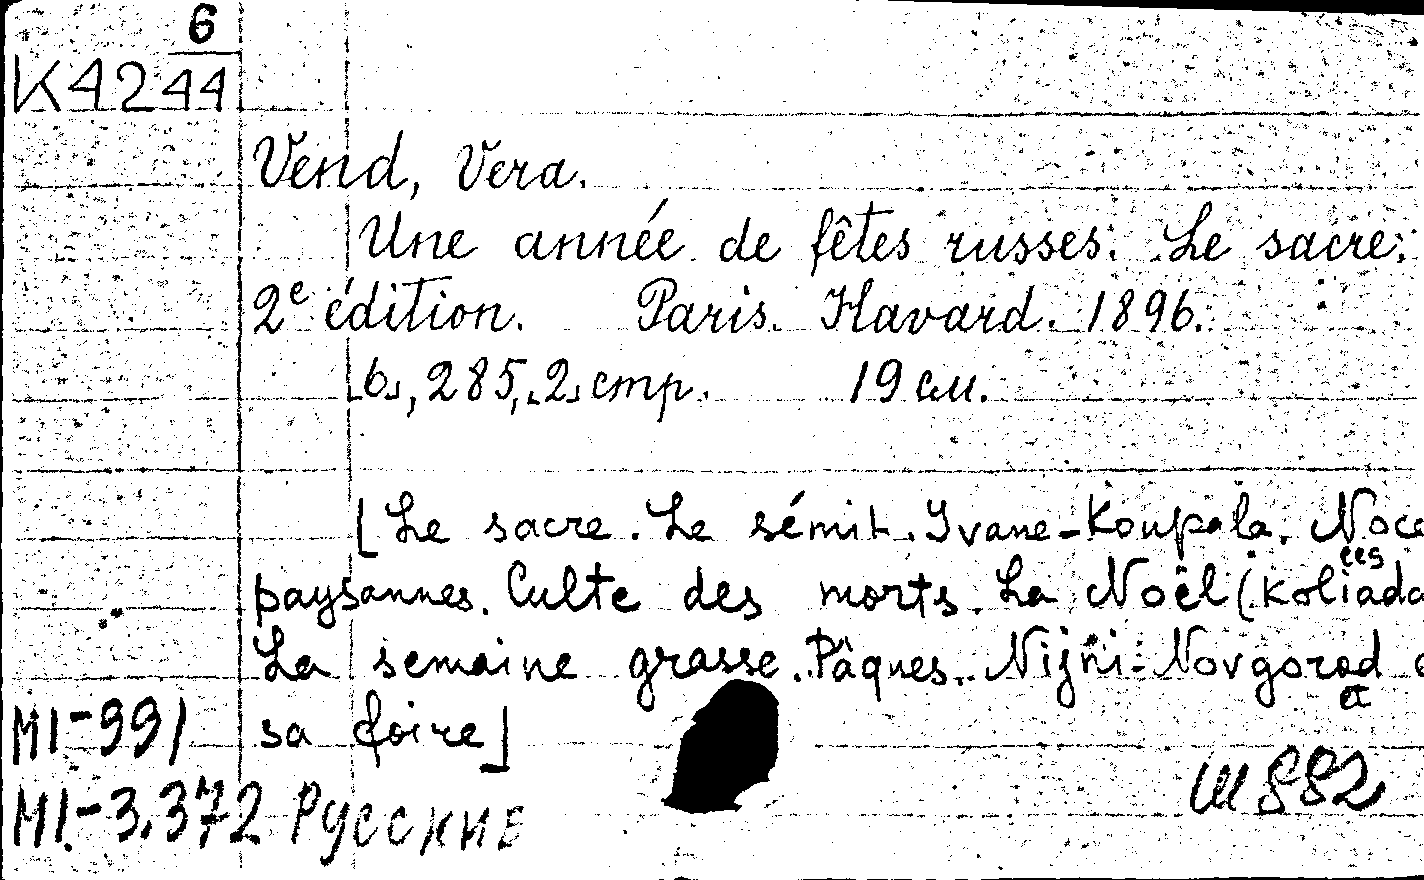 6
K42 44
Vend, Vera.
Une année de fêtes russes. Le sacre.
2e édition. Paris. Havard. 1896.
[6], 285, [2] стр. 19 см.
[Le sacre. Le sémik. Yvane-Koupala. Noces
paysannes. Culte des morts. La Noël (Koliada
La semaine grasse. Pâques. Nijni-Novgorod et
sa foire]
MI-991
Ш882
MI-3.372 Русские